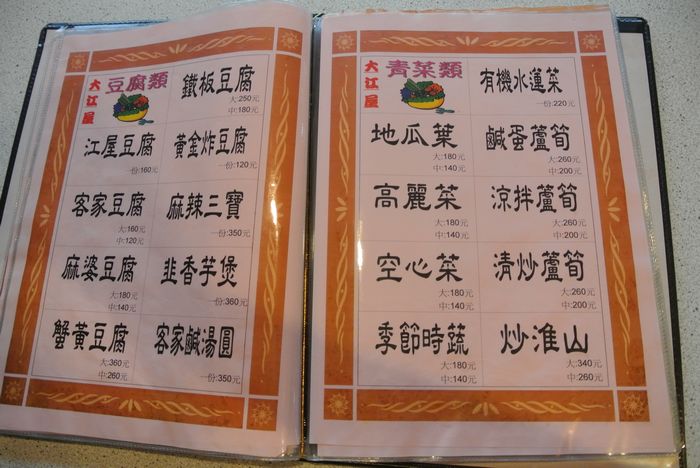 大江屋
豆腐類
鐵板豆腐
大:250元
中:180元
江屋豆腐
一份:160元
黃金炸豆腐
一份:120元
客家豆腐
大:160元
中:120元
麻辣三寶
一份:350元
麻婆豆腐
大:180元
中:140元
韭香芋煲
一份:360元
蟹黃豆腐
大:360元
中:260元
客家鹹湯圓
一份:350元
大江屋
青菜類
有機水蓮菜
一份:220元
地瓜葉
大:180元
中:140元
鹹蛋蘆筍
大:260元
中:200元
高麗菜
大:180元
中:140元
涼拌蘆筍
大:260元
中:200元
空心菜
大:180元
中:140元
清炒蘆筍
大:260元
中:200元
季節時蔬
大:180元
中:140元
炒淮山
大:340元
中:260元